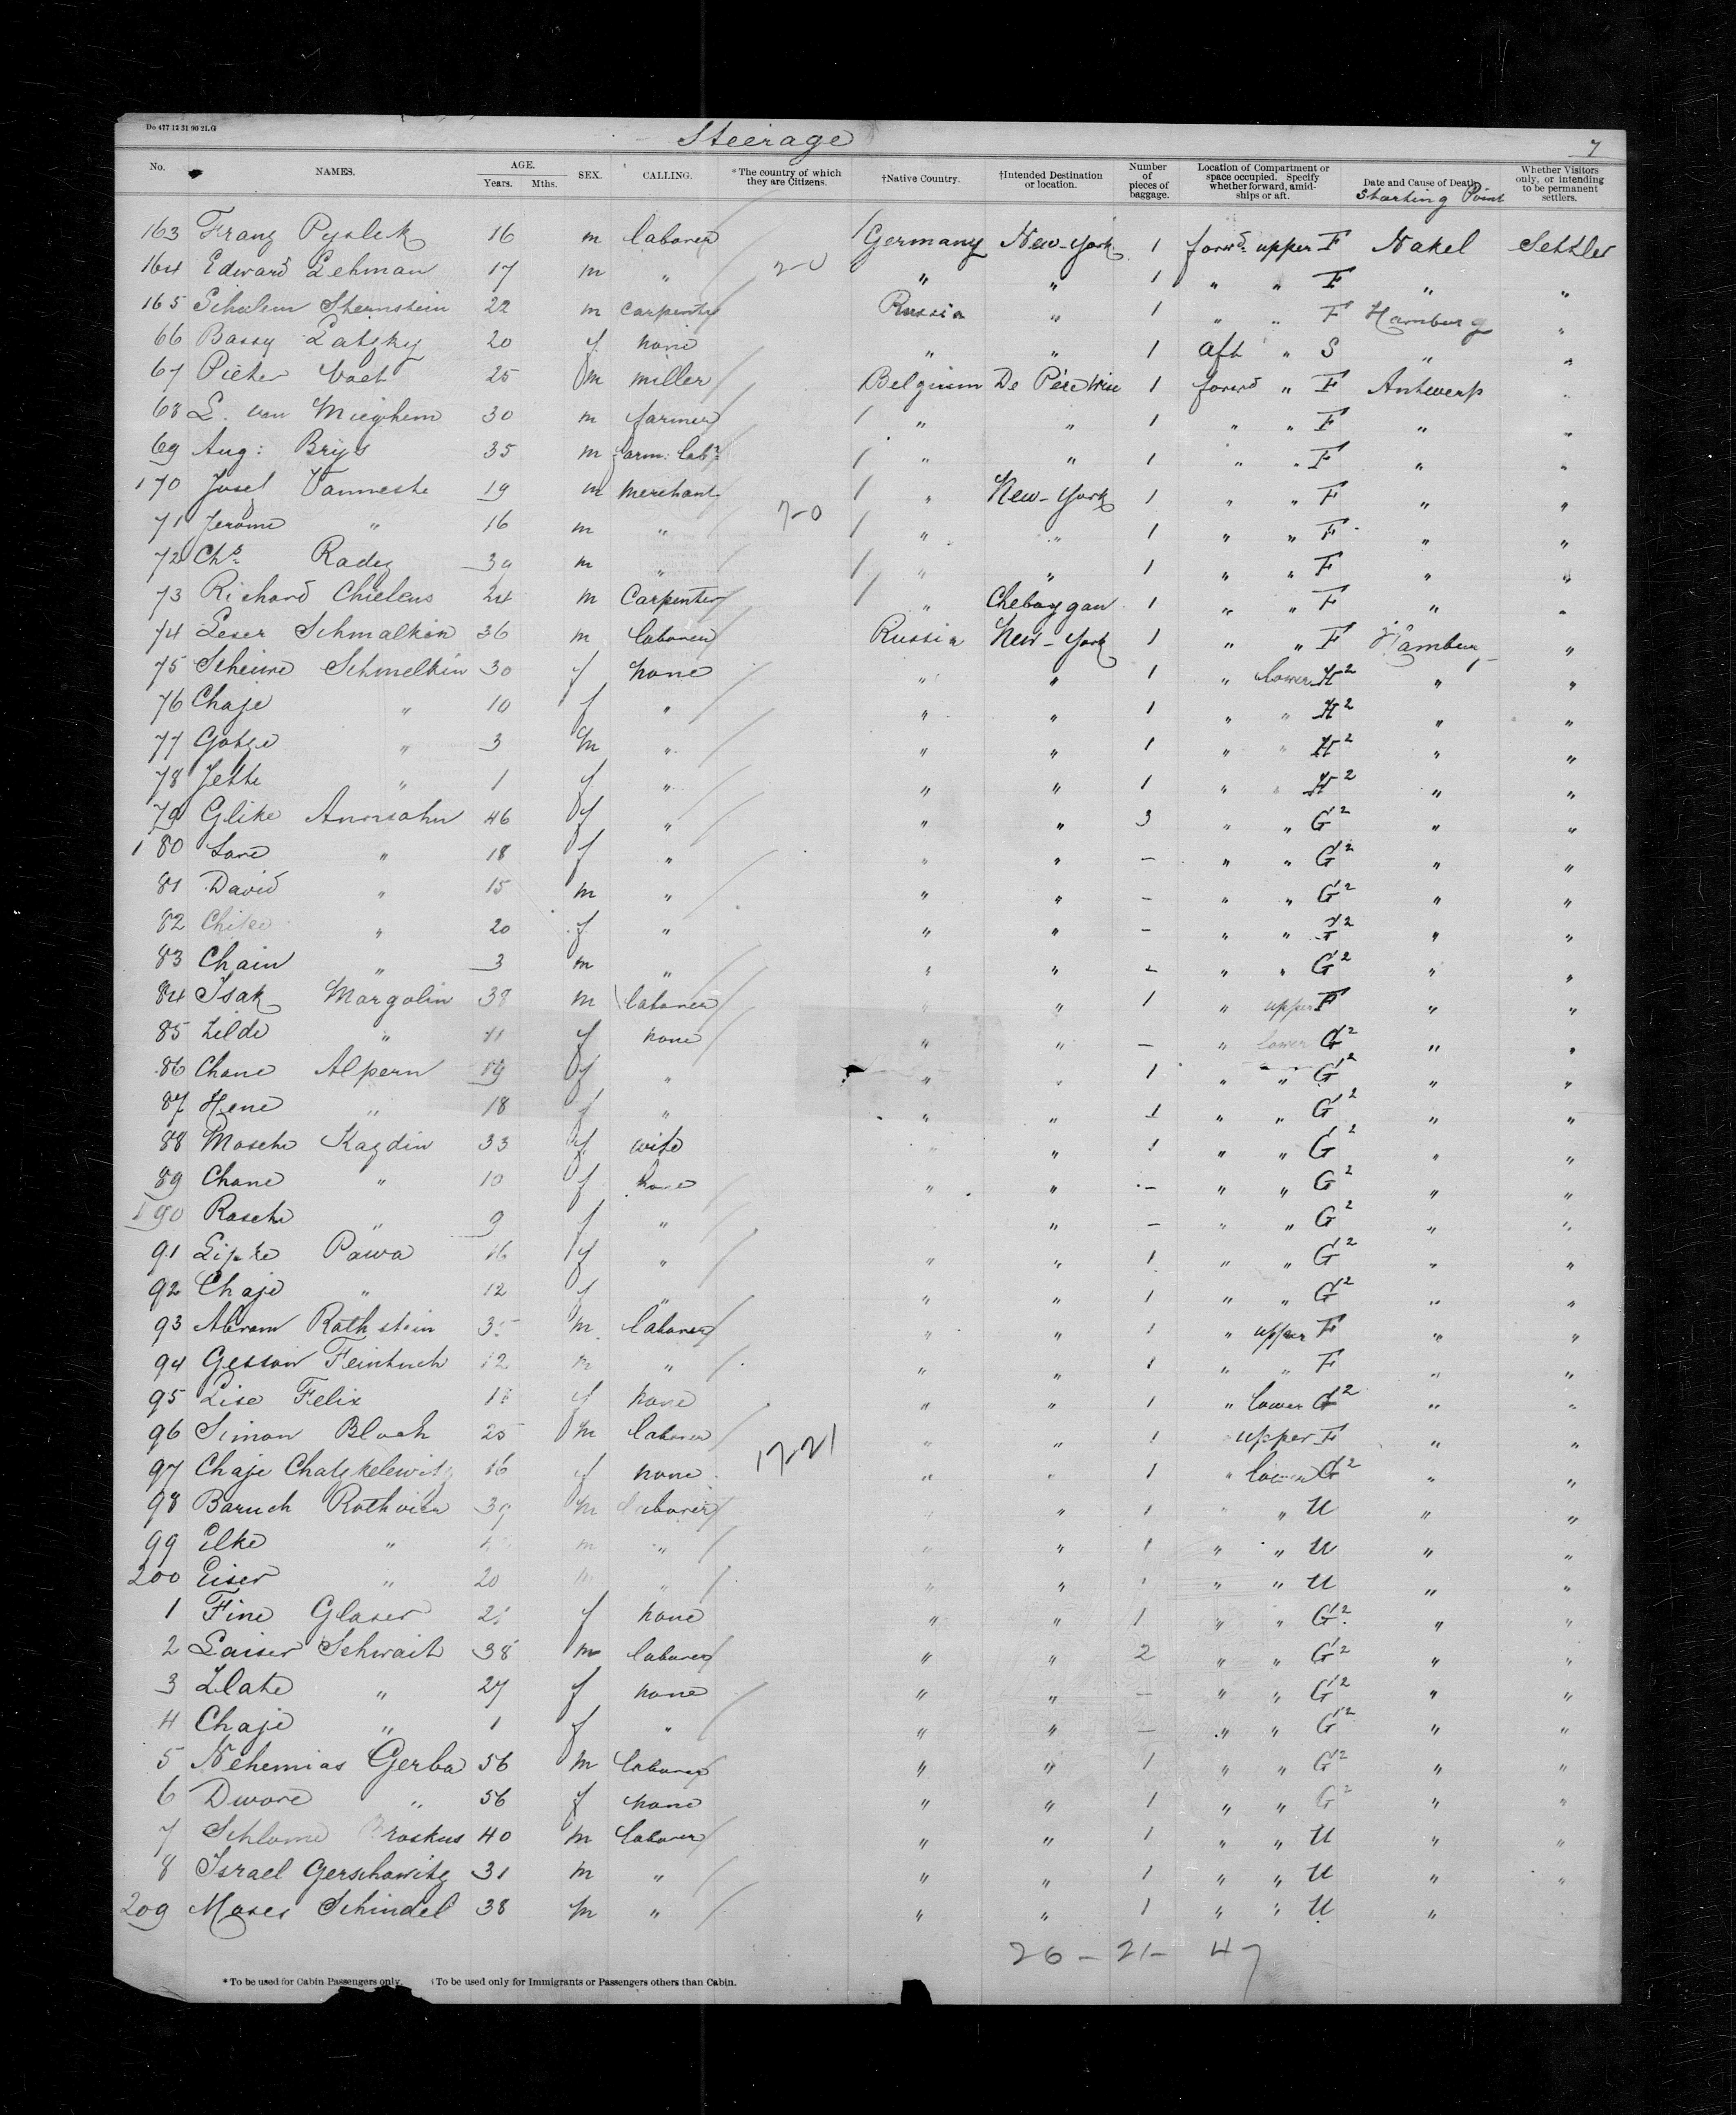 Do 477 12 31 90 2L.G
Steerage
7
No. NAMES. AGE. Years. Mths. SEX. CALLING. *The country of which they are Citizens. †Native Country. †Intended Destination or location. Number of pieces of baggage. Location of Compartment or space occupied. Specify whether forward, amidships or aft. Date and Cause of Death. Starting Point Whether Visitors only, or intending to be permanent settlers.
163 Franz 16 m laborer Germany New-York 1 forwd. upper F Nakel Settler
164 Edward Lehman 17 m " 2-0 " " 1 " " F " "
165 Schulem Sternstein 22 m carpenter Russia " 1 " " F Hamburg "
66 Bassy Latzky 20 f none " " 1 aft " S " "
67 Pieter Voet 25 m miller Belgium De Pére Wis 1 forwd " F Antwerp "
68 L. van Mieghem 30 m farmer " " 1 " " F " "
69 Aug: Brys 35 m farm: labr. " " 1 " " F " "
170 Josef Vanneste 19 m merchant " New-York 1 " " F " "
71 Jerome " 16 m " 7-0 " " 1 " " F " "
72 Chs. Radez m " " " 1 " " F " "
73 Richard Chielens 24 m Carpenter " Cheboygan 1 " " F " "
74 Leser Schmalkin 36 m laborer Russia New-York 1 " " F Hamburg "
75 Scheine Schmelkin 30 f none " " 1 " lower H2 " "
76 Chaje " 10 f " " " 1 " " H2 " "
77 Gotze " 3 m " " " 1 " " H2 " "
78 Jette " 1 f " " " 1 " " H2 " "
79 Glike Aronsohn 46 f " " " 3 " " G2 " "
180 Sore " 18 f " " " - " " G2 " "
81 David " 15 m " " " - " " G2 " "
82 " 20 f " " " - " " " "
83 Chain " 3 m " " " - " " G2 " "
84 Isak Margolin 38 m laborer " " 1 " upper F " "
85 Zilde " 11 f none " " - " lower G2 " "
86 Chane Alpern 19 f " " " 1 " " G2 " "
87 Hene " 18 f " " " 1 " " G2 " "
88 Mosche Kazdin 33 f wife " " 1 " " G2 " "
89 Chane " 10 f none " " - " " G2 " "
190 Rasche " 9 f " " - " " G2 " "
91 Lipke Pawa 16 f " " " 1 " " G2 " "
92 Chaje " 12 f " " " 1 " " G2 " "
93 Abram Rothstein m laborer " " 1 " upper F " "
94 Gesson Feintuch 12 m " " " 1 " " F " "
95 Lise Felix f none " " 1 " lower G2 " "
96 Simon Bloch 25 m laborer " " 1 upper F " "
97 Chaje Chatzkelewitz 16 f none 17-21 " " 1 " lower G2 " "
98 Baruch m laborer " " 1 " " U " "
99 Elke " m " " " 1 " " U " "
200 Eiser " 20 m " " " " " U " "
1 Fine Glaser f none " " 1 " " G2 " "
2 Laiser Schwait 38 m laborer " " 2 " " G2 " "
3 Zlate " 27 f none " " - " " G2 " "
4 Chaje " 1 f " " " - " " G2 " "
5 Nehemias Gerba 56 m laborer " " 1 " " G2 " "
6 Dwore " 56 f none " " 1 " " G2 " "
7 Schlome 40 m laborer " " 1 " " U " "
8 Israel Gerschowitz 31 m " " " 1 " " U " "
209 Moses Schindel 38 m " " " 1 " " U "
26 - 21 - 47
*To be used for Cabin Passengers only. †To be used only for Immigrants or Passengers others than Cabin.